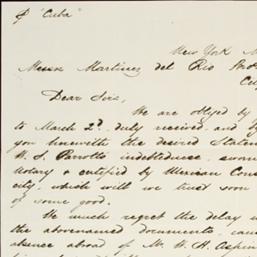 p "Cuba"
New York M
Messrs Martinez del Rio Bro
City
Dear Sirs,
We are obliged by
to March 2d. duly received, and
you herewith the desired Statem
W. S. Parrotts indebtedness, sworn
Notary & certified by Mexican Cons
city, which will we trust soon
of some good.
We much regret the delay
the abovenamed documents, cau
absence abroad of Mr. W. H. Aspin